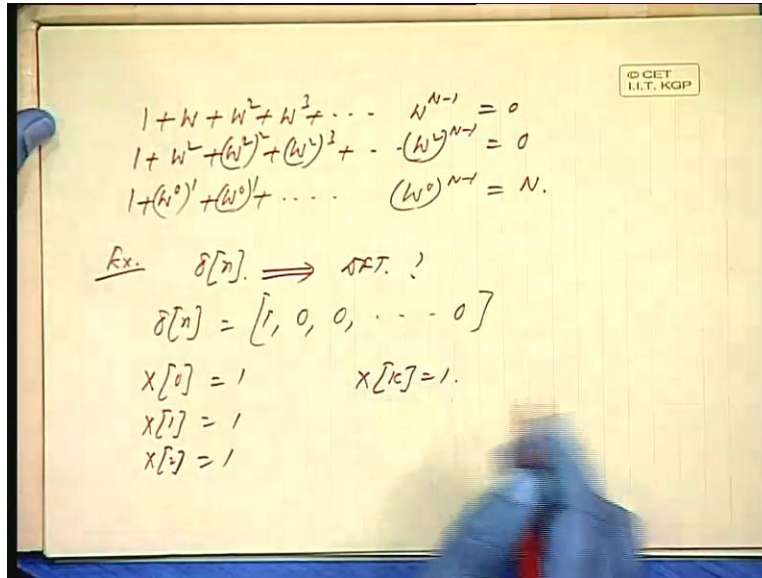 © CET
I.I.T. KGP
1 + W + W² + W³ + ···· W^(N-1) = 0
1 + W² + (W²)² + (W²)³ + · · -(W²)^(N-1) = 0
1 + (W⁰)¹ + (W⁰)¹ + ···· (W⁰)^(N-1) = N.
Ex. δ[n]. ⟹ DFT. ?
δ[n] = [1, 0, 0, ···· 0]
X[0] = 1 X[k] = 1.
X[1] = 1
X[2] = 1